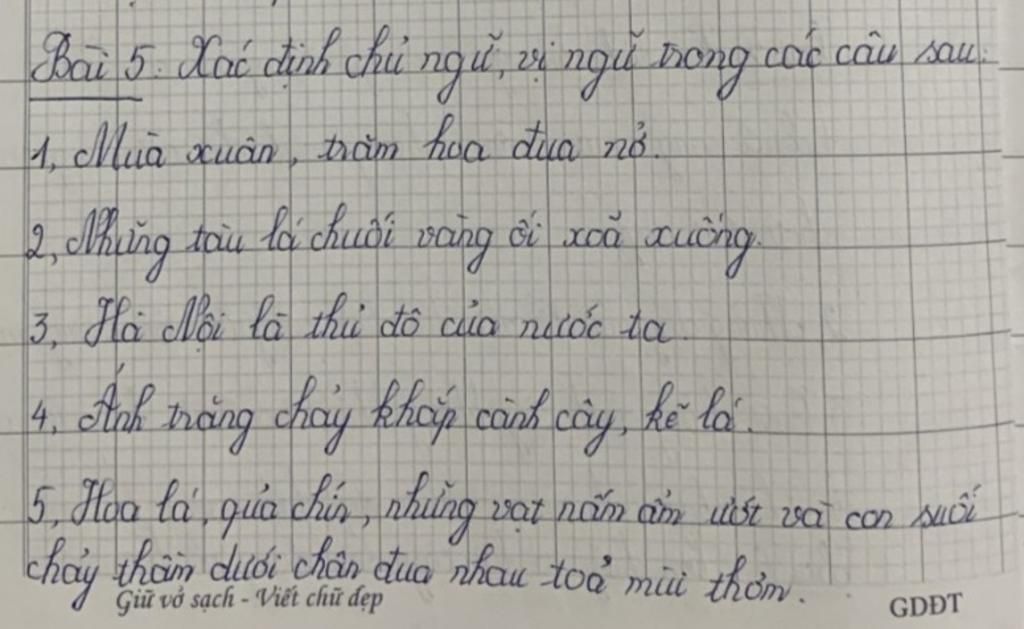 Bài 5. Xác định chủ ngữ, vị ngữ trong các câu sau:
1, Mùa xuân, trăm hoa đua nở.
2, Những tàu lá chuối vàng ối xoã xuống.
3, Hà Nội là thủ đô của nước ta.
4, Ánh trăng chảy khắp cành cây, kẽ lá.
5, Hoa lá, quả chín, những vạt nấm ẩm ướt và con suối
chảy thầm dưới chân đua nhau toả mùi thơm.
Giữ vở sạch - Viết chữ đẹp
GDĐT